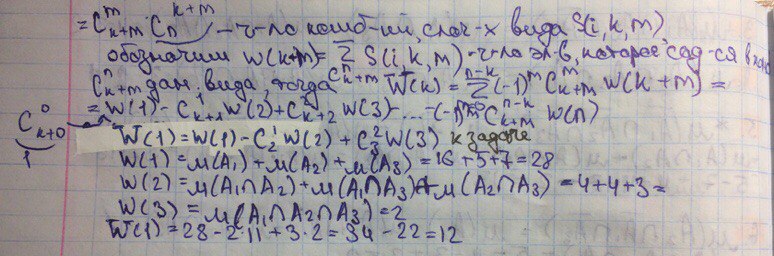 = C_{k+m}^m · C_n^{k+m} – ч-ло комб-ий, слаг-х вида S(i, k, m)
обозначим W(k+m) = Σ S(i, k, m) – число эл-в, которое сод-ся в
C_{k+m}^n дан. вида, тогда C_{k+m}^n W̅(k) = Σ_{m=0}^{n-k} (-1)^m C_{k+m}^m W(k+m) =
= W(1) - C_{k+1}^1 W(2) + C_{k+2}^2 W(3) - ... (-1) C_{k+m}^{n-k} W(n)
C_{k+0}^0
1
W̅(1) = W(1) - C_2^1 W(2) + C_3^2 W(3) к задаче
W(1) = μ(A₁) + μ(A₂) + μ(A₃) = 16 + 5 + 7 = 28
W(2) = μ(A₁∩A₂) + μ(A₁∩A₃) + μ(A₂∩A₃) = 4 + 4 + 3 =
W(3) = μ(A₁∩A₂∩A₃) = 2
W̅(1) = 28 - 2·11 + 3·2 = 34 - 22 = 12